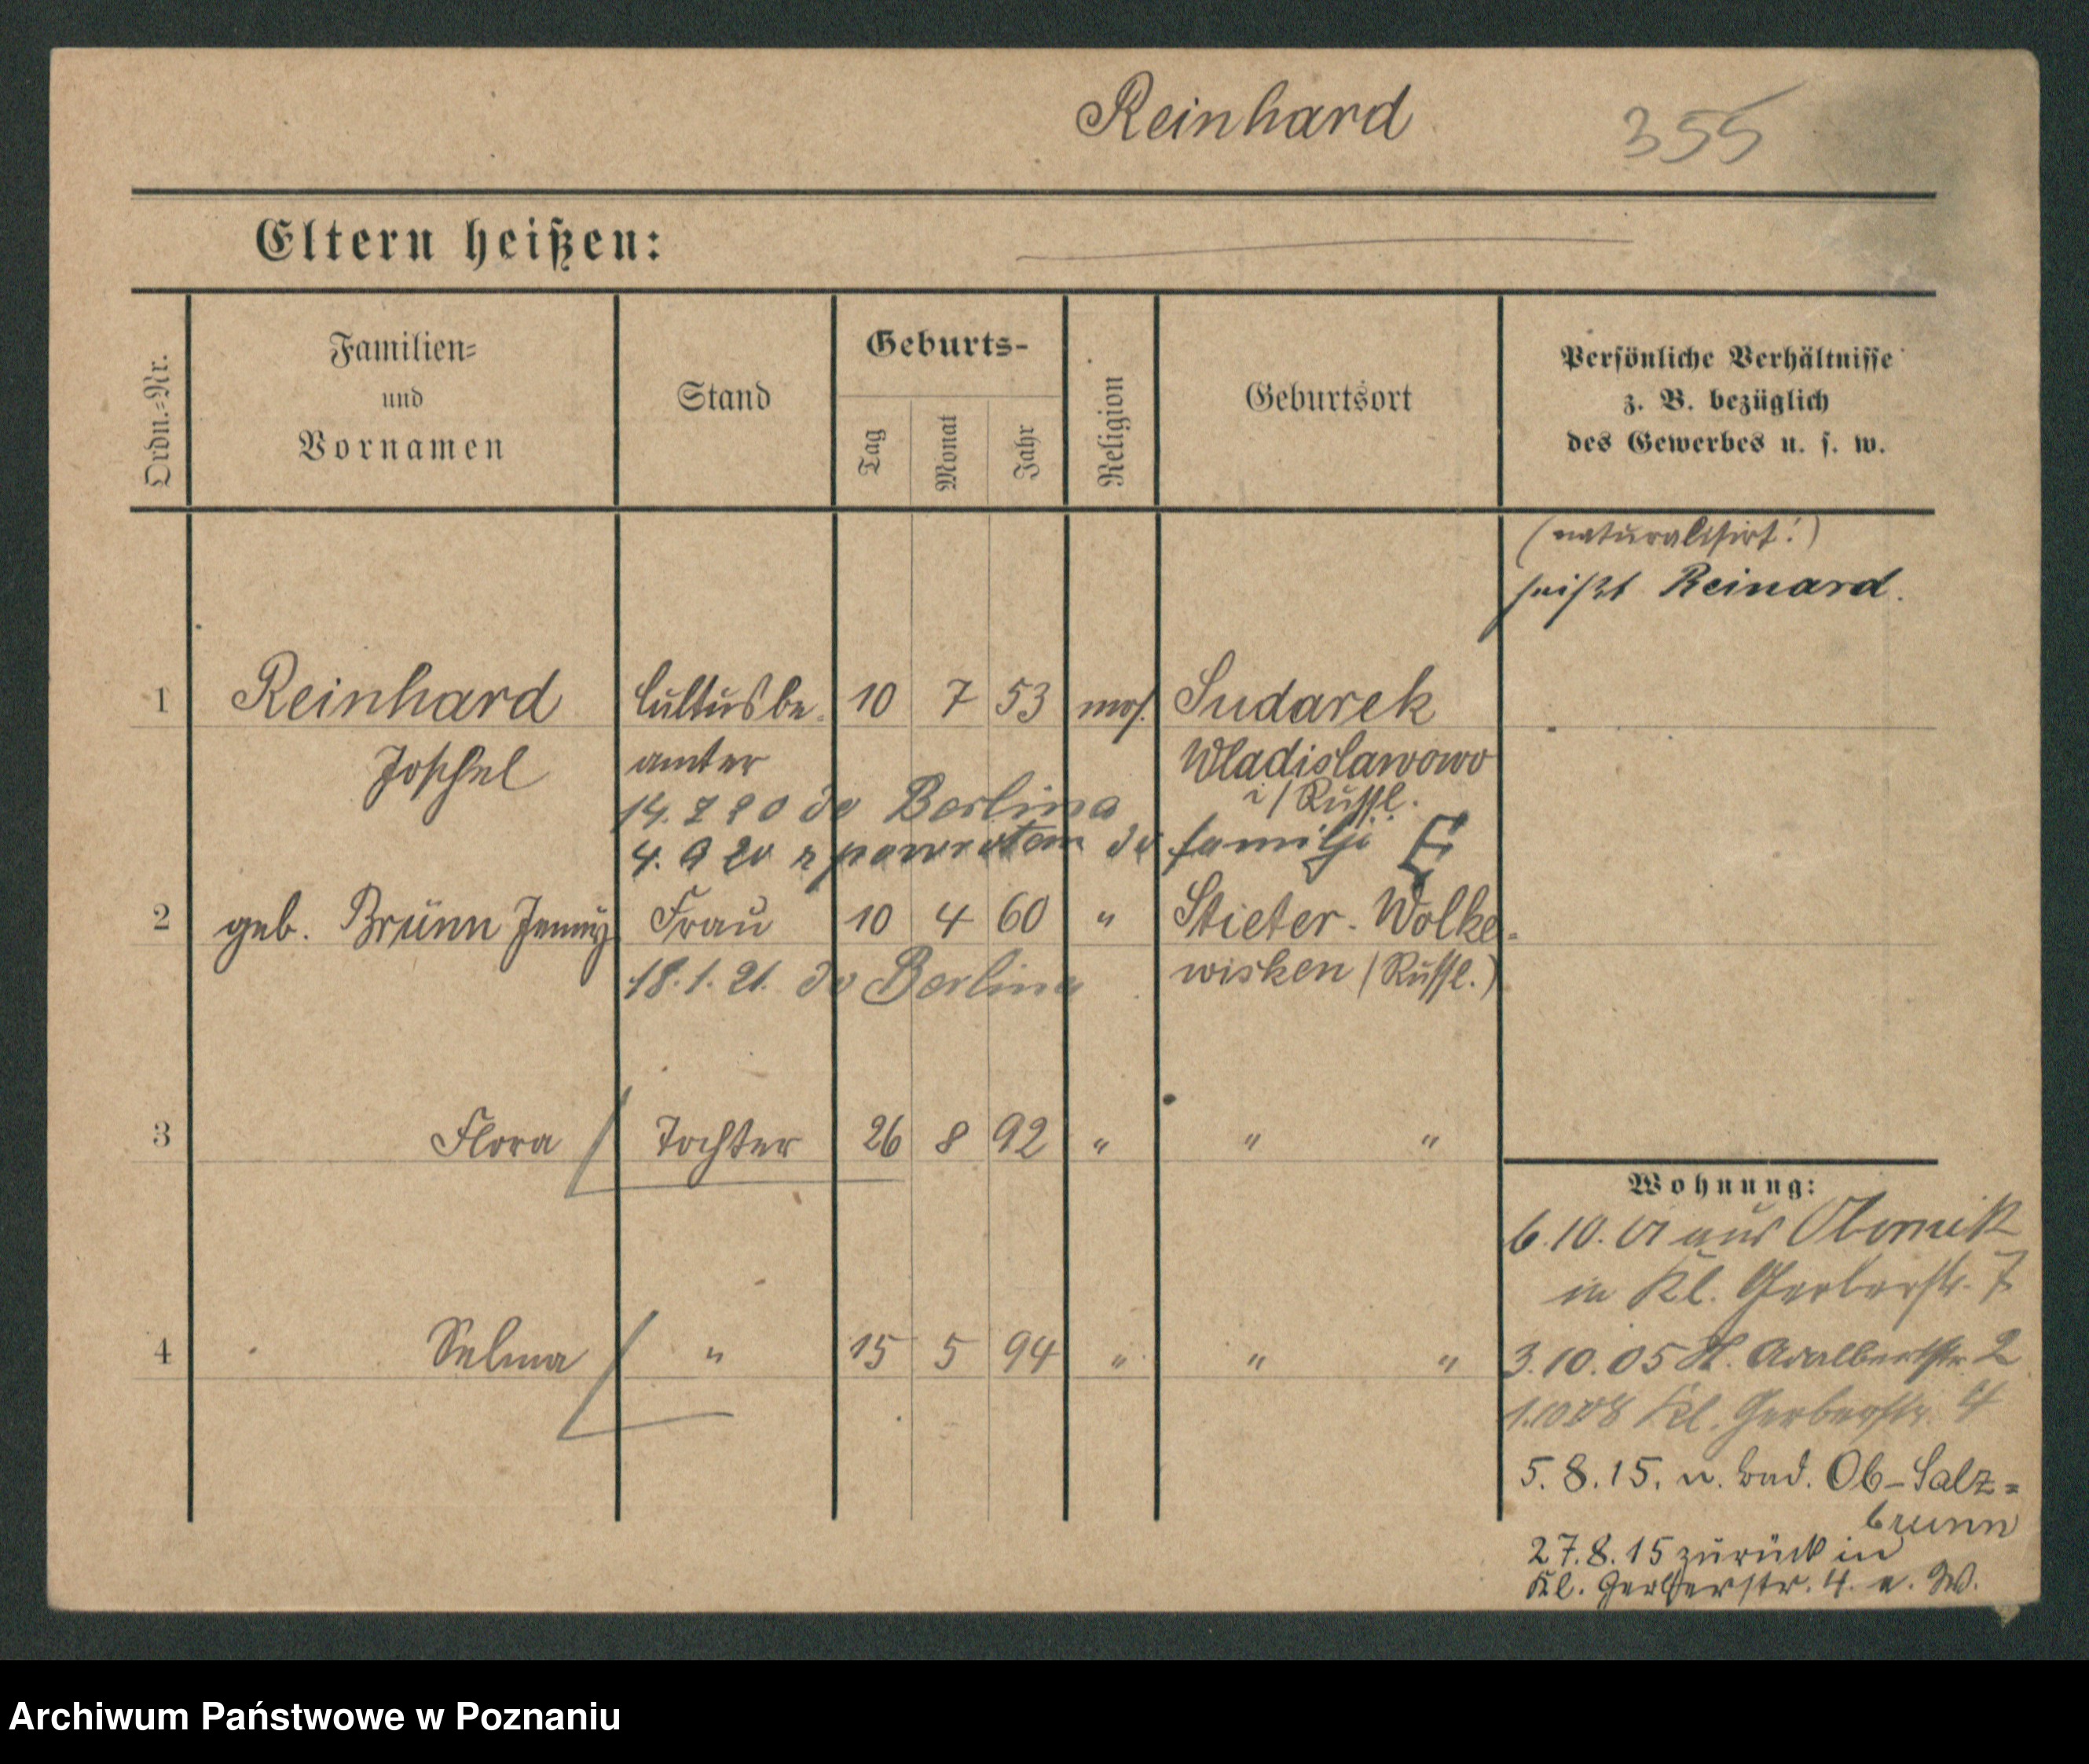 Reinhard 355
Eltern heißen:
Ordn.-Nr.
Familien-
und
Vornamen
Stand
Geburts-
Tag
Monat
Jahr
Religion
Geburtsort
Persönliche Verhältnisse
z. B. bezüglich
des Gewerbes u. s. w.
(naturalisirt!)
heißt Reinard.
1 Reinhard Cultusbe- 10 7 53 mos. Sudarek
Joschel amter Wladislawowo
i/Russl.
14.7 20 do Berlina
4.9 20 z powrotem do familji
2 geb. Brünn Jenny Frau 10 4 60 " Stieter-Wolke-
wisken (Russl.)
18.1.21. do Berlina
3 Flora Tochter 26 8 92 " " "
4 Selma " 15 5 94 " " "
Wohnung:
6.10.01 aus Obornik
in Kl. Gerberstr. 7
3.10.05 St. Adalbertstr. 2
1.10 08 Kl. Gerberstr. 4
5.8.15. n. Bad. Ob-Salz=
brunn
27.8.15 zurück in
Kl. Gerberstr. 4. a. W.
Archiwum Państwowe w Poznaniu